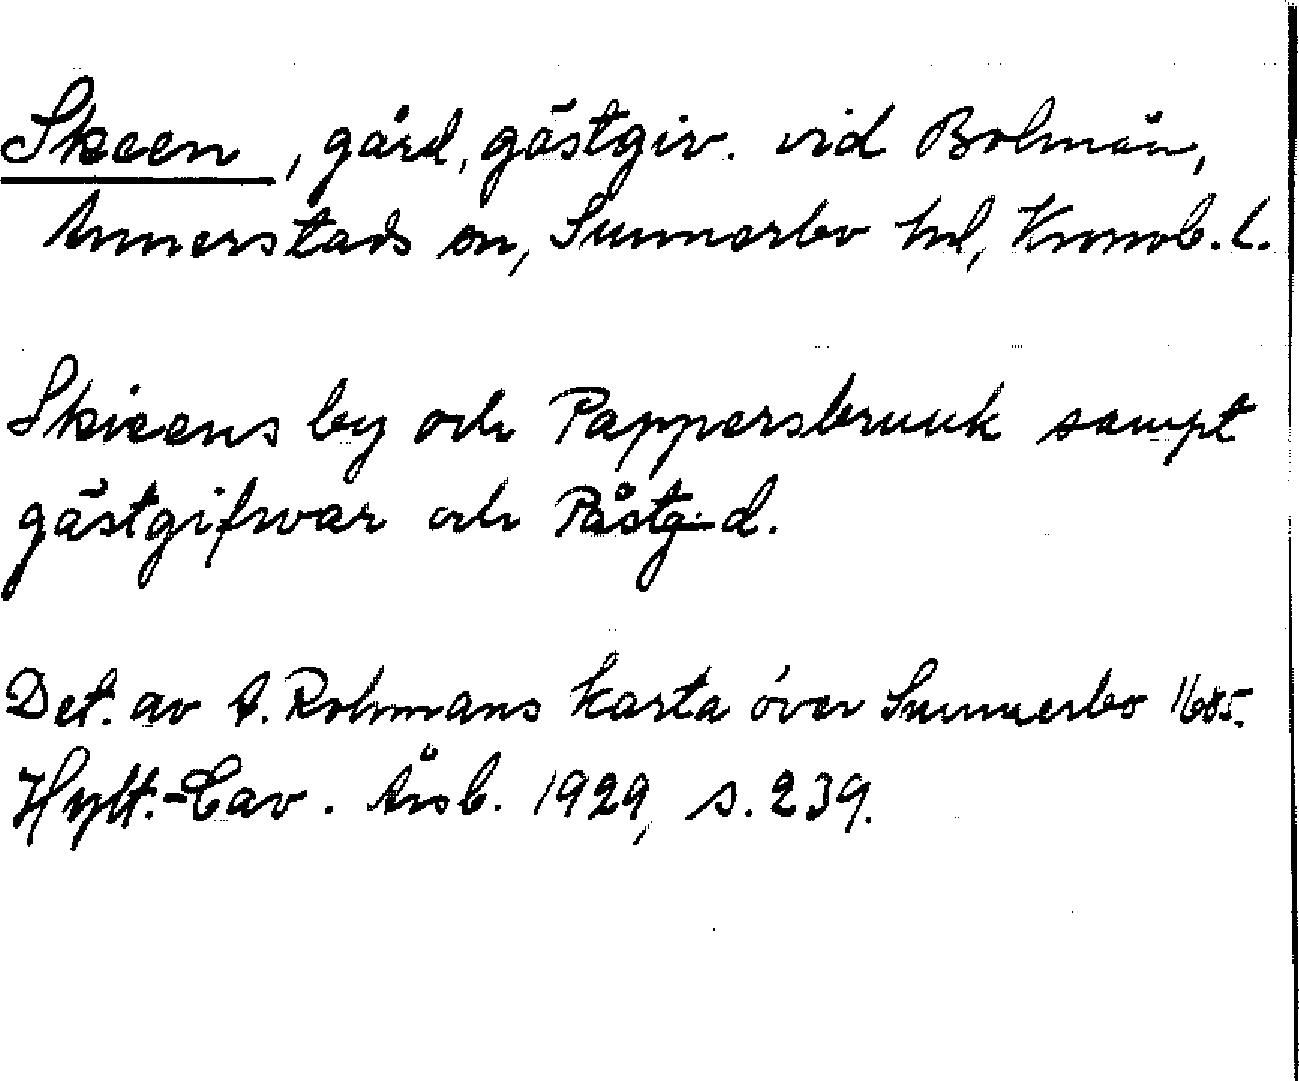 Skeen, gård, gästgiv. vid Bolmån,
Annerstads sn, Sunnerbo hd, Kronob. l.
Skieens by och Pappersbruuk sampt
gästgifwar och Påstg-d.
Det. av A. Rohmans karta över Sunnerbo 1685.
Hylt.-Cav. Årsb. 1929, s. 239.